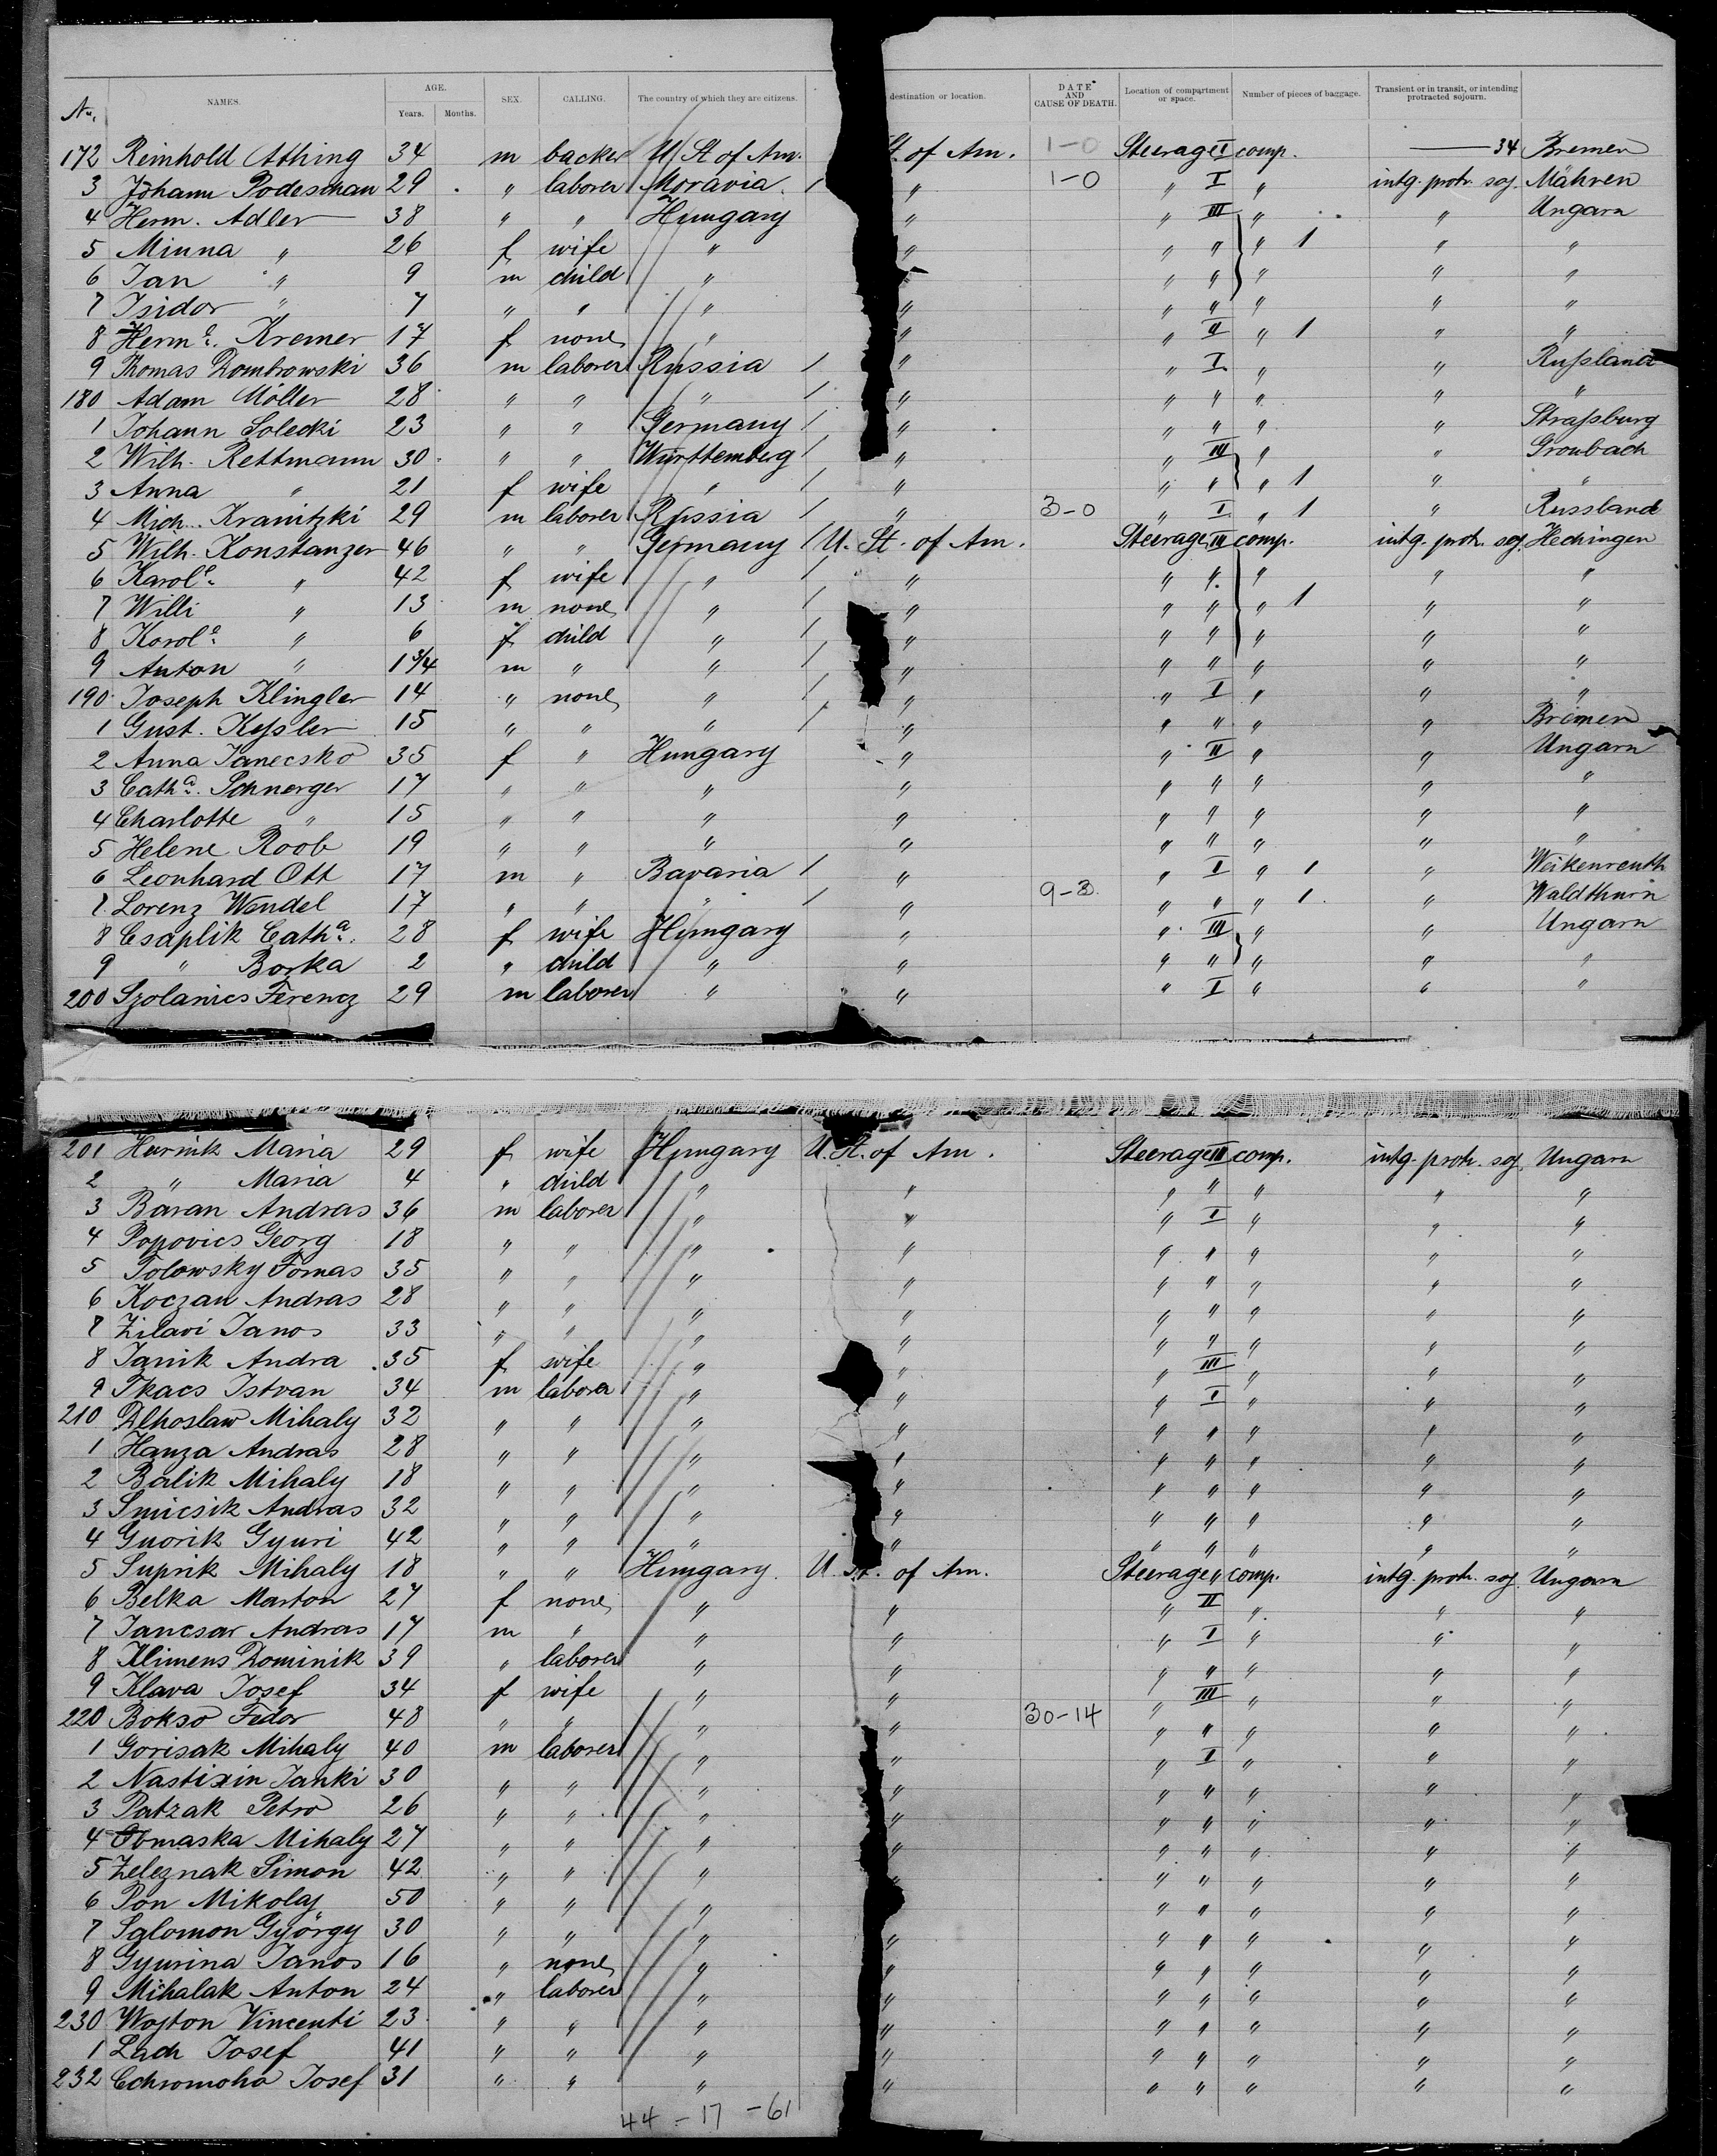 No. NAMES. AGE. Years. Months. SEX. CALLING. The country of which they are citizens. destination or location. DATE AND CAUSE OF DEATH. Location of compartment or space. Number of pieces of baggage. Transient or in transit, or intending protracted sojourn.
172 Reinhold Athing 34 m backer U St of Am. St. of Am. 1-0 Steerage II comp. — 34 Bremen
3 Johann Podeschan 29 " laborer Moravia / " 1-0 " I " intg. protr. soj. Mähren
4 Herm. Adler 38 " " Hungary " " III " " Ungarn
5 Minna " 26 f wife " " " " " 1 " "
6 Jan " 9 m child " " " " " " "
7 Isidor " 7 " " " " " " " " "
8 Herm. Kremer 17 f none " " " II " 1 " "
9 Thomas Dombrowski 36 m laborer Russia / " " I " " Russland
180 Adam Möller 28 " " " / " " " " " "
1 Johann Solecki 23 " " Germany / " " " " " Strassburg
2 Wilh. Rettmann 30 " " Württemberg / " " III " " Gronbach
3 Anna " 21 f wife " / " " " " 1 " "
4 Mich. Kranitzki 29 m laborer Russia / " 3-0 " I " 1 " Russland
5 Wilh. Konstanzer 46 " " Germany / U. St. of Am. Steerage III comp. intg. protr. soj. Hechingen
6 Karole " 42 f wife " / " " " " " "
7 Willi " 13 m none " / " " " " 1 " "
8 Karole " 6 f child " / " " " " " "
9 Anton " 1 3/4 m " " / " " " " " "
190 Joseph Klingler 14 " none " / " " I " " "
1 Gust. Kessler 15 " " " / " " " " " Bremen
2 Anna Janecsko 35 f " Hungary " " II " " Ungarn
3 Catha. Schnerger 17 " " " " " " " " "
4 Charlotte " 15 " " " " " " " " "
5 Helene Roob 19 " " " " " " " " "
6 Leonhard Ott 17 m " Bavaria / " " I " 1 " Weikenreuth
7 Lorenz Wendel 17 " " " / " 9-3 " " " 1 " Waldthurn
8 Csaplik Catha. 28 f wife Hungary " " III " " Ungarn
9 " Borka 2 " child " " " " " " "
200 Szolanics Ferencz 29 m laborer " " " I " " "
201 Hurnik Maria 29 f wife Hungary U. St. of Am. Steerage III comp. intg. protr. soj. Ungarn
2 " Maria 4 " child " " " " " " "
3 Baran Andras 36 m laborer " " " I " " "
4 Popovics Georg 18 " " " " " " " " "
5 Tolowsky Tomas 35 " " " " " " " " "
6 Koczan Andras 28 " " " " " " " " "
7 Zilavi Janos 33 " " " " " " " " "
8 Janik Andra 35 f wife " " " III " " "
9 Tkacs Istvan 34 m laborer " " " I " " "
210 Dlhoslaw Mihaly 32 " " " " " " " " "
1 Hanza Andras 28 " " " " " " " " "
2 Balik Mihaly 18 " " " " " " " " "
3 Smicsik Andras 32 " " " " " " " " "
4 Guorik Gyuri 42 " " " " " " " " "
5 Suprik Mihaly 18 " " Hungary U. St. of Am. Steerage " comp. intg. protr. soj. Ungarn
6 Belka Marton 27 f none " " " II " " "
7 Jancsar Andras 17 m " " " " I " " "
8 Klimens Dominik 39 " laborer " " " " " " "
9 Klava Josef 34 f wife " " " III " " "
220 Bokso Fedor 48 " " " " 30-14 " " " " "
1 Gorisak Mihaly 40 m laborer " " " I " " "
2 Nastixin Janki 30 " " " " " " " " "
3 Patzak Petro 26 " " " " " " " " "
4 Tomaska Mihaly 27 " " " " " " " " "
5 Zeleznak Simon 42 " " " " " " " " "
6 Pon Mikolaj 50 " " " " " " " " "
7 Salomon György 30 " " " " " " " " "
8 Gyurina Janos 16 " none " " " " " " "
9 Mihalak Anton 24 " laborer " " " " " " "
230 Wojton Vincenti 23 " " " " " " " " "
1 Lach Josef 41 " " " " " " " " "
232 Cchromoha Josef 31 " " " " " " " " "
44 - 17 - 61